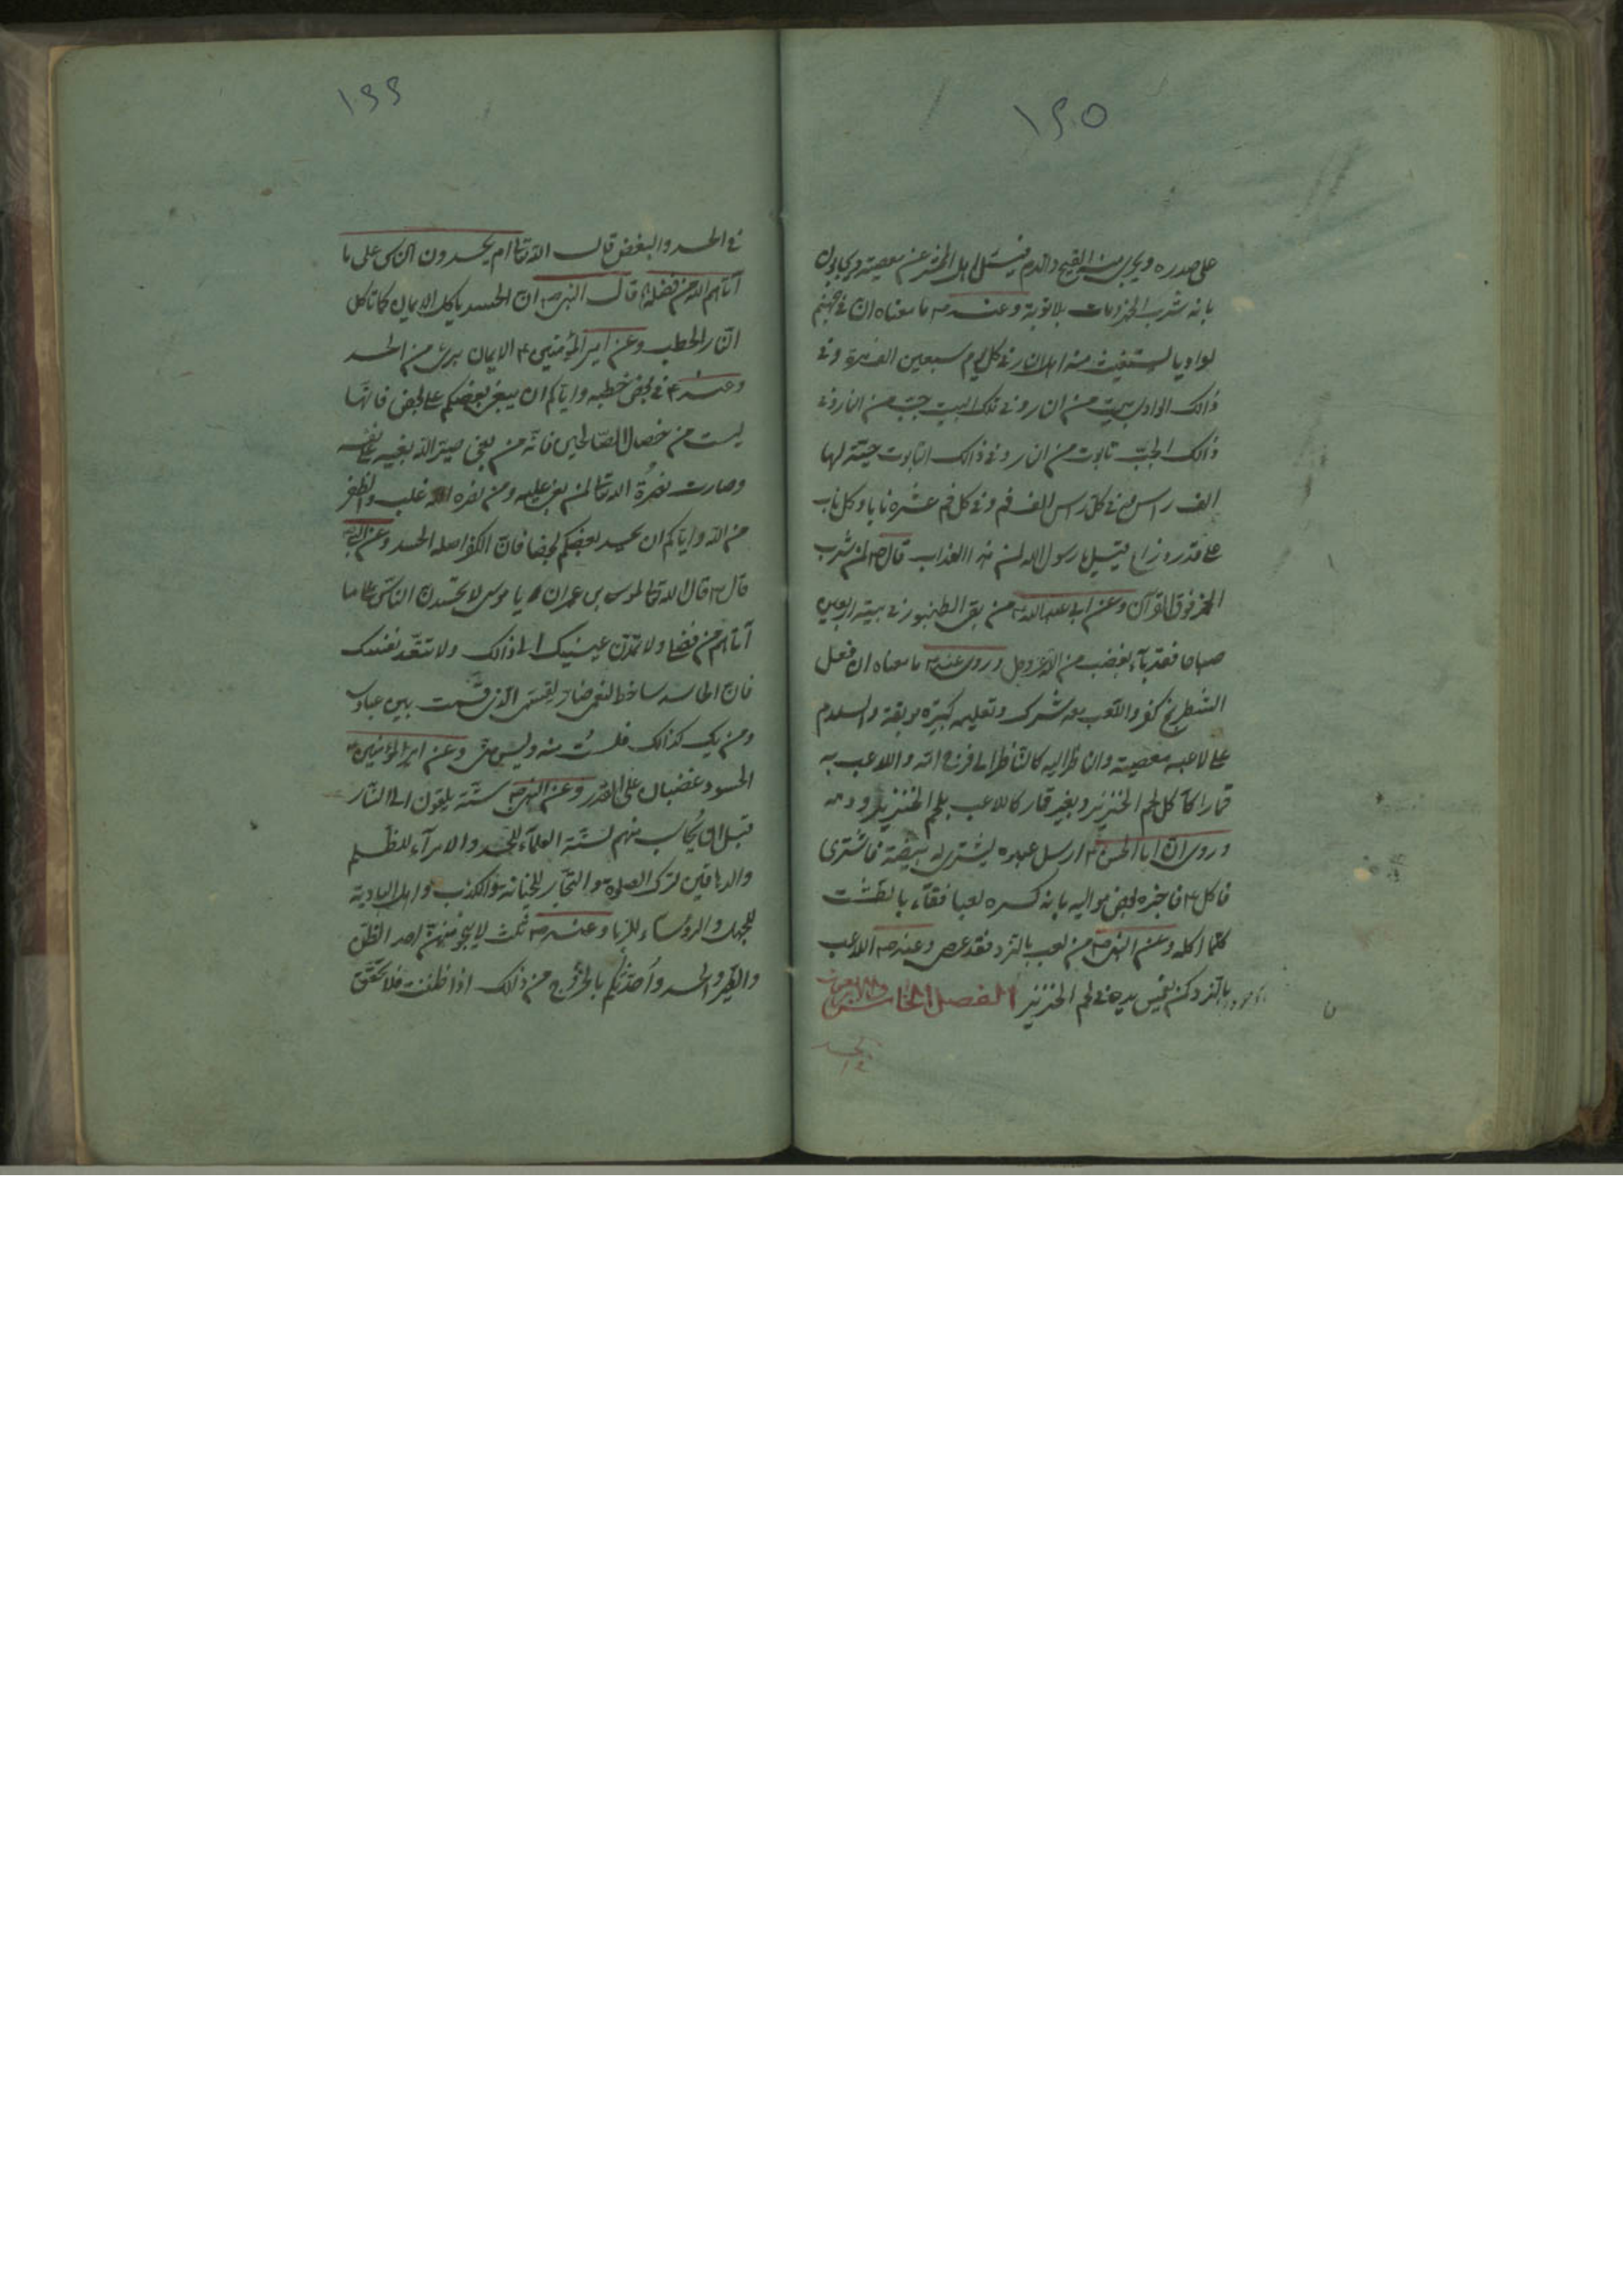 ١٤٥
على صدره ويجرى منه القيح والدم فيسئل اهل المحشر عن معصيته ويجابون
بانه شرب الخمر ومات بلا توبة وعنه ص ما معناه ان في جهنم
لواديا يستغيث منه اهل النار في كل يوم سبعين الف مرة وفي
ذالك الوادى بيت من النار وفي ذلك البيت جب من النار وفي
ذالك الجب تابوت من النار وفي ذالك التابوت حيّة لها
الف راس في كل راس الف فم وفي كل فم عشرة نابا وكل ناب
على قدر ذراع قيل يا رسول الله لمن هذا العذاب قال ص لمن شرب
الخمر وعن ابي عبد الله ع من بقى الطنبور في بيته اربعين
صباحا فقد بآء بغضب من الله عز وجل وروى عنه ع ما معناه ان فعل
الشطرنج كفر واللّعب به شرك وتعليمه كبيرة موبقة والسلام
على لاعبه معصيته وان ناظر اليه كالنّاظر الى فرج امّه واللاعب به
قمارا كآكل لحم الخنزير وبغير قمار كاللاعب بلحم الخنزير ودمه
وروى ان ابا الحسن ع ارسل عبده ليشترى له بيضة فاشترى
فاكل ع فاخبره بعض مواليه بانه كسره لعبا فقآء بالطشت
كلما اكله وعن النبى ص من لعب بالنرد فقد عصى وعنه ص اللاعب
بالنرد كمن يغمس يده في لحم الخنزير الفصل الخامس والاربعون
١٤٦
في الحسد والبغض قال الله تعالى ام يحسدون الناس على ما
آتاهم الله من فضله قال النبى ص ان الحسد ياكل الايمان كما تاكل
النّار الحطب وعن امير المؤمنين ع الايمان برئ من الحسد
وعنه ع في بعض خطبه واياكم ان يبغى بعضكم على بعض فانها
ليست من خصال الصّالحين فانّه من بغى صيّر الله بغيه على نفسه
وصارت نصرة الله تعالى لمن بغى عليه ومن نصره الله غلب والظفر
من الله وايّاكم ان يحسد بعضكم بعضا فانّ الكفر اصله الحسد وعن النبى ص
قال ص قال الله تعالى لموسى بن عمران يا موسى لا تحسدنّ الناس على ما
آتاهم من فضلى ولا تمدّن عينيك الى ذالك ولا تتبعه نفسك
فان الحاسد ساخط لنعمى ضادّ لقسمى الّذى قسمت بين عبادى
ومن يك كذالك فلست منه وليس منّى وعن امير المؤمنين ع
الحسود غضبان على القدر وعن النبى ص ستّة يلقون الى النّار
قبل ان يحاسب منهم لستّة العلمآء للحسد والامرآء للظلم
والدهاقين لترك الصلوة والتجّار للخيانة والكذب واهل البادية
للجهل والروساء للزنا وعنه ص ثلث لا ينجو منهنّ احد الظنّ
والطير والحسد واحدّثكم بالخروج من ذالك اذا ظننت فلا تحقّق